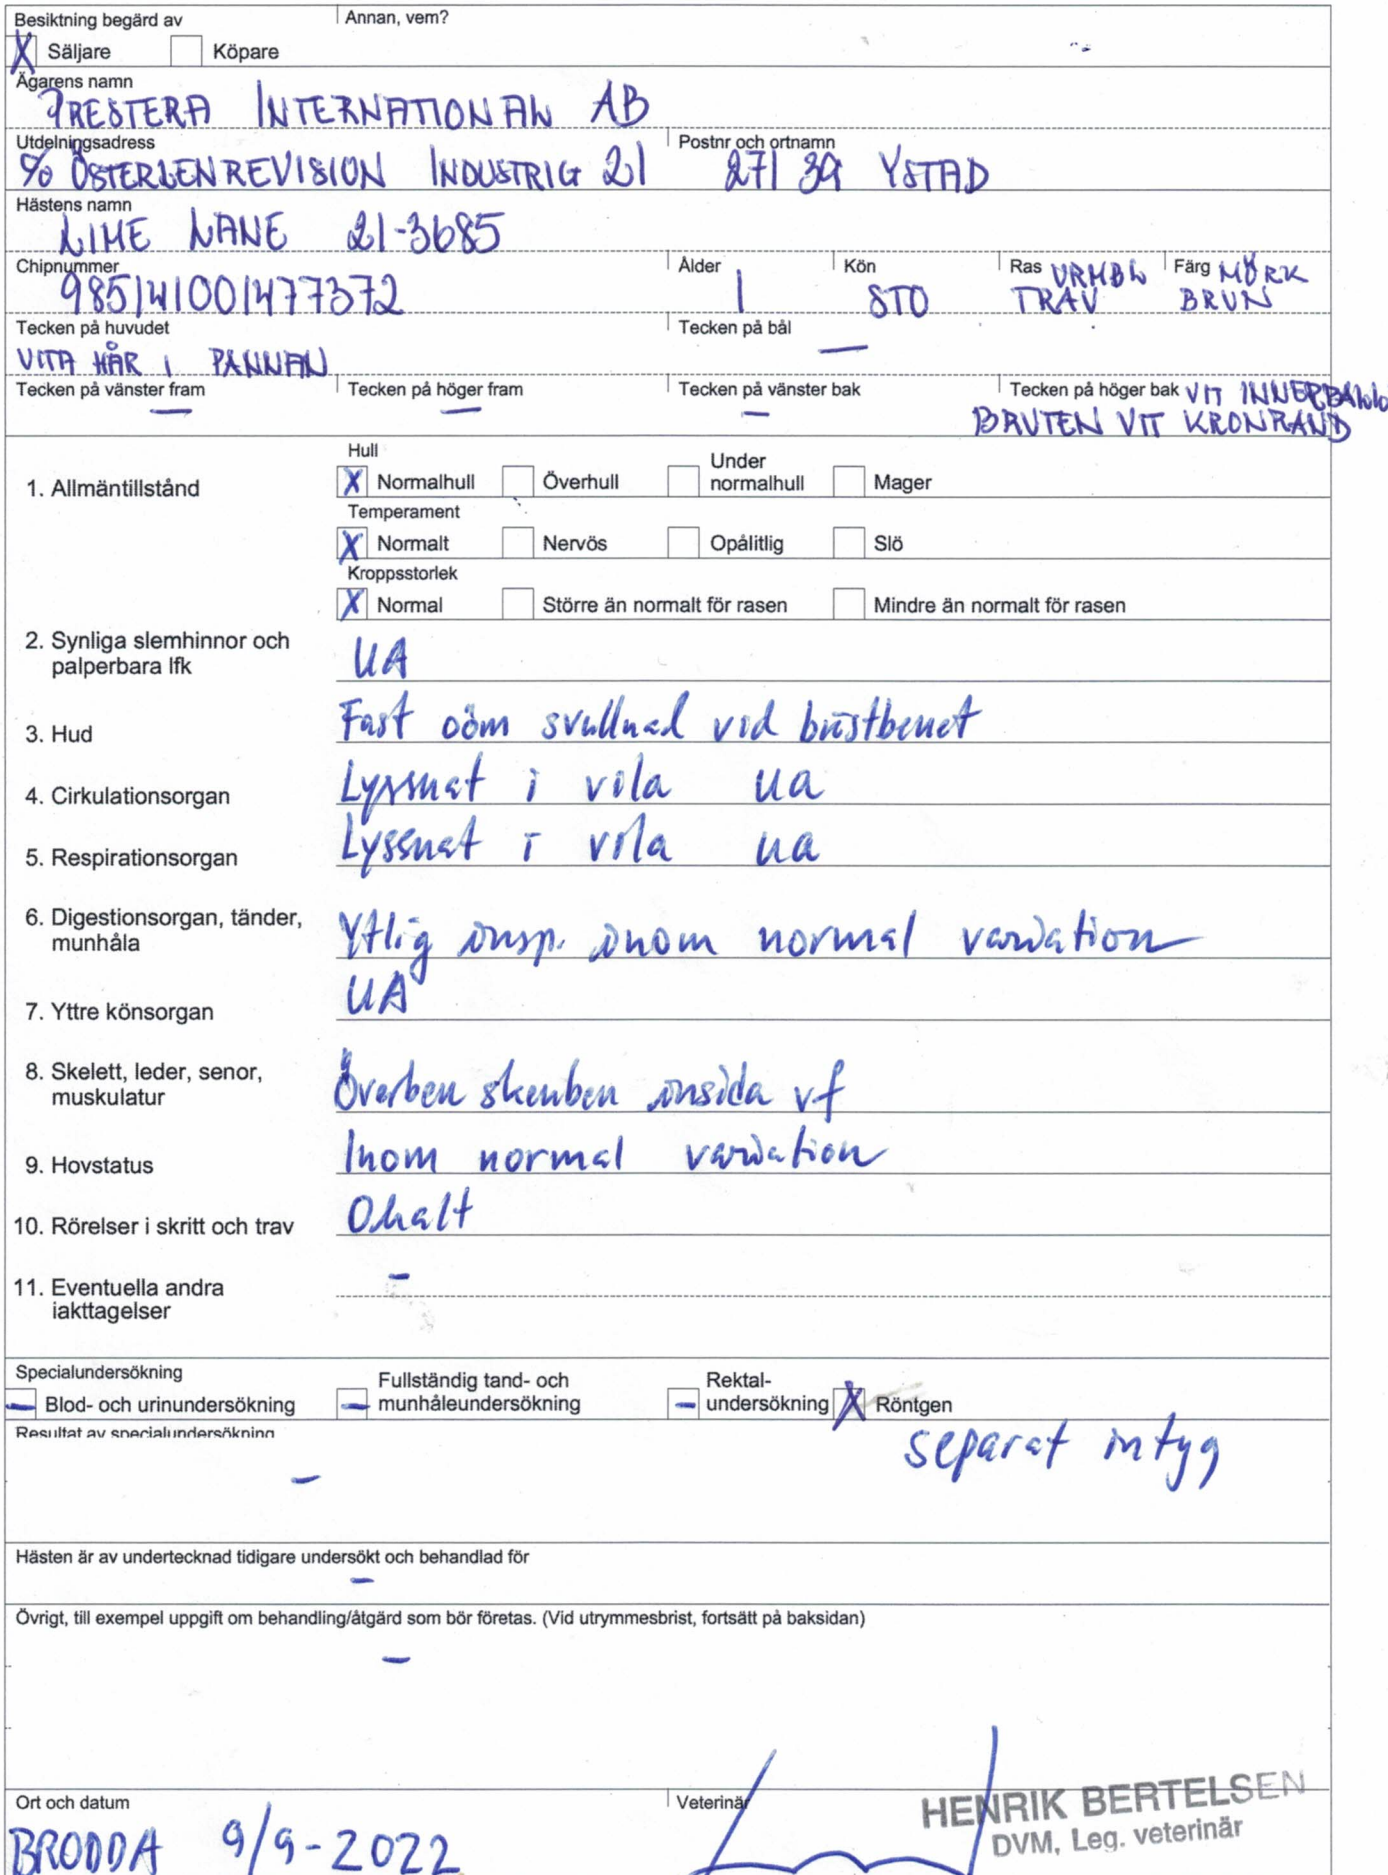 Besiktning begärd av Annan, vem?
X Säljare Köpare
Ägarens namn
PRESTERA INTERNATIONAL AB
Utdelningsadress Postnr och ortnamn
% ÖSTERLENREVISION INDUSTRIG 21 271 39 YSTAD
Hästens namn
LIME LANE 21-3685
Chipnummer Ålder Kön Ras VRMBL Färg MÖRK
985141001477372 1 STO TRAV BRUN
Tecken på huvudet Tecken på bål
VITA HÅR I PANNAN —
Tecken på vänster fram Tecken på höger fram Tecken på vänster bak Tecken på höger bak VIT INNERBALL
— — — BRUTEN VIT KRONRAND
Hull
1. Allmäntillstånd X Normalhull Överhull Under normalhull Mager
Temperament
X Normalt Nervös Opålitlig Slö
Kroppsstorlek
X Normal Större än normalt för rasen Mindre än normalt för rasen
2. Synliga slemhinnor och
palperbara lfk UA
3. Hud Fast oöm svullnad vid bröstbenet
4. Cirkulationsorgan Lyssnat i vila ua
5. Respirationsorgan Lyssnat i vila ua
6. Digestionsorgan, tänder,
munhåla Ytlig insp. inom normal variation
7. Yttre könsorgan UA
8. Skelett, leder, senor,
muskulatur Överben skenben insida vf
9. Hovstatus Inom normal variation
10. Rörelser i skritt och trav Ohalt
11. Eventuella andra —
iakttagelser
Specialundersökning
— Blod- och urinundersökning — Fullständig tand- och munhåleundersökning — Rektal-undersökning X Röntgen
Resultat av specialundersökning separat intyg
—
Hästen är av undertecknad tidigare undersökt och behandlad för
—
Övrigt, till exempel uppgift om behandling/åtgärd som bör företas. (Vid utrymmesbrist, fortsätt på baksidan)
—
Ort och datum Veterinär HENRIK BERTELSEN
BRODDA 9/9-2022 DVM, Leg. veterinär